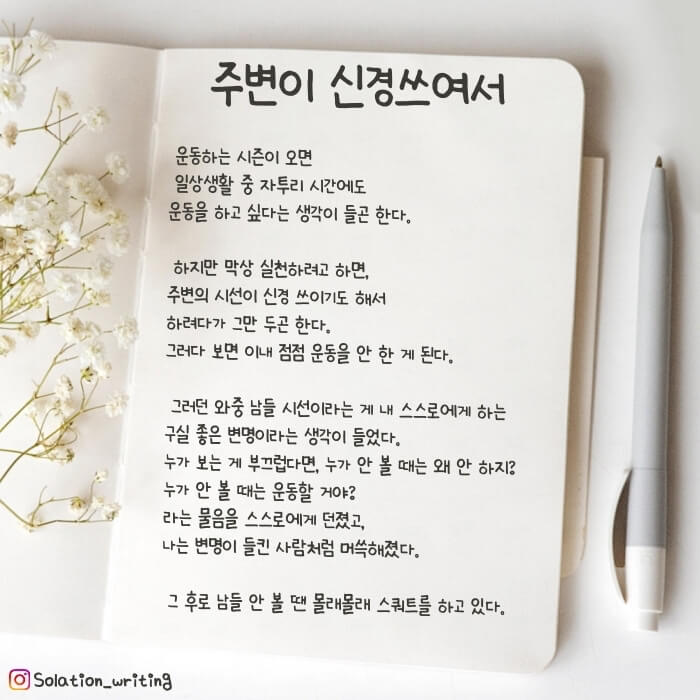 주변이 신경쓰여서
운동하는 시즌이 오면
일상생활 중 자투리 시간에도
운동을 하고 싶다는 생각이 들곤 한다.
하지만 막상 실천하려고 하면,
주변의 시선이 신경 쓰이기도 해서
하려다가 그만 두곤 한다.
그러다 보면 이내 점점 운동을 안 한 게 된다.
그러던 와중 남들 시선이라는 게 내 스스로에게 하는
구실 좋은 변명이라는 생각이 들었다.
누가 보는 게 부끄럽다면, 누가 안 볼 때는 왜 안 하지?
누가 안 볼 때는 운동할 거야?
라는 물음을 스스로에게 던졌고,
나는 변명이 들킨 사람처럼 머쓱해졌다.
그 후로 남들 안 볼 땐 몰래몰래 스쿼트를 하고 있다.
@Solation_writing